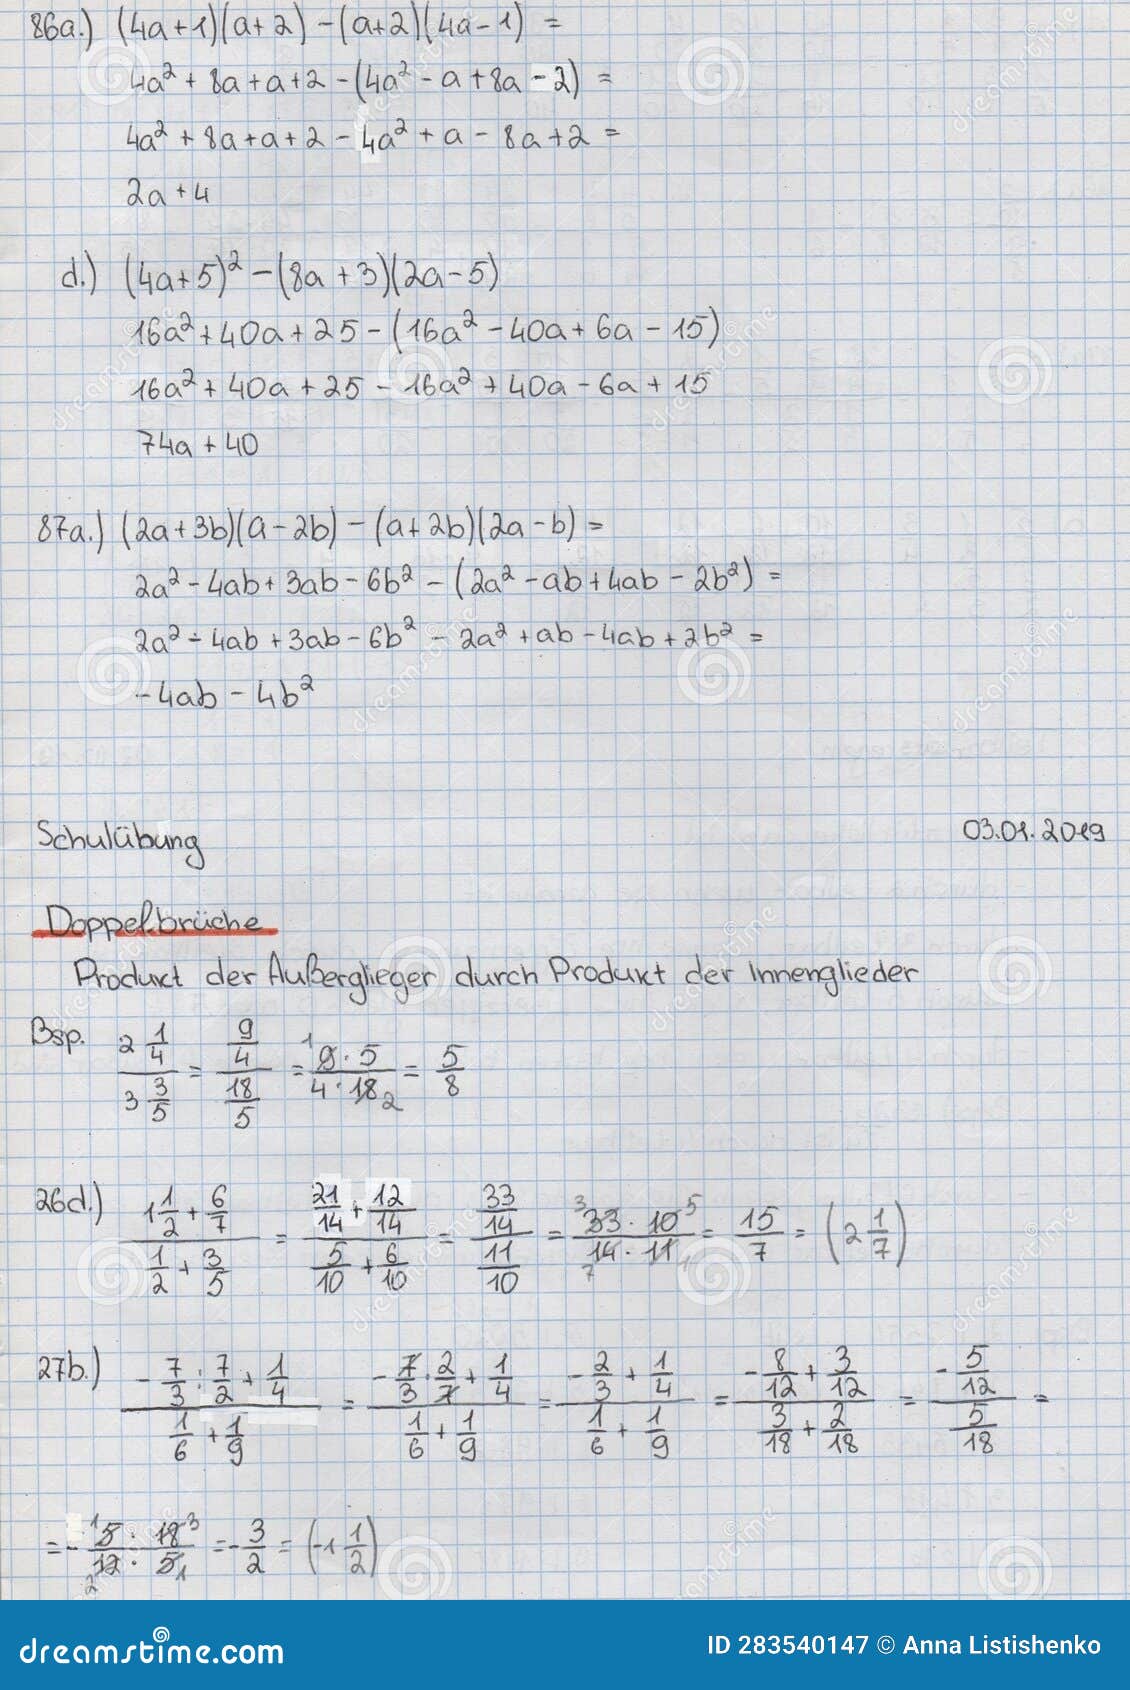 86a.) (4a+1)(a+2) - (a+2)(4a-1) =
4a² + 8a + a + 2 - (4a² - a + 8a - 2) =
4a² + 8a + a + 2 - 4a² + a - 8a + 2 =
2a + 4
d.) (4a+5)² - (8a+3)(2a-5)
16a² + 40a + 25 - (16a² - 40a + 6a - 15)
16a² + 40a + 25 - 16a² + 40a - 6a + 15
74a + 40
87a.) (2a+3b)(a-2b) - (a+2b)(2a-b) =
2a² - 4ab + 3ab - 6b² - (2a² - ab + 4ab - 2b²) =
2a² - 4ab + 3ab - 6b² - 2a² + ab - 4ab + 2b² =
-4ab - 4b²
Schulübung 03.01.2019
Doppelbrüche
Produkt der Außerglieger durch Produkt der Innenglieder
Bsp. (2 1/4)/(3 3/5) = (9/4)/(18/5) = (¹9 · 5)/(4 · 18₂) = 5/8
26d.) (1 1/2 + 6/7)/(1/2 + 3/5) = (21/14 + 12/14)/(5/10 + 6/10) = (33/14)/(11/10) = (³33 · 10⁵)/(₇14 · 11₁) = 15/7 = (2 1/7)
27b.) (-7/3 : 7/2 + 1/4)/(1/6 + 1/9) = (-7/3 · 2/7 + 1/4)/(1/6 + 1/9) = (-2/3 + 1/4)/(1/6 + 1/9) = (-8/12 + 3/12)/(3/18 + 2/18) = (-5/12)/(5/18) =
= - (¹5 · 18³)/(₂12 · 5₁) = -3/2 = (-1 1/2)
dreamstime.com ID 283540147 © Anna Listishenko